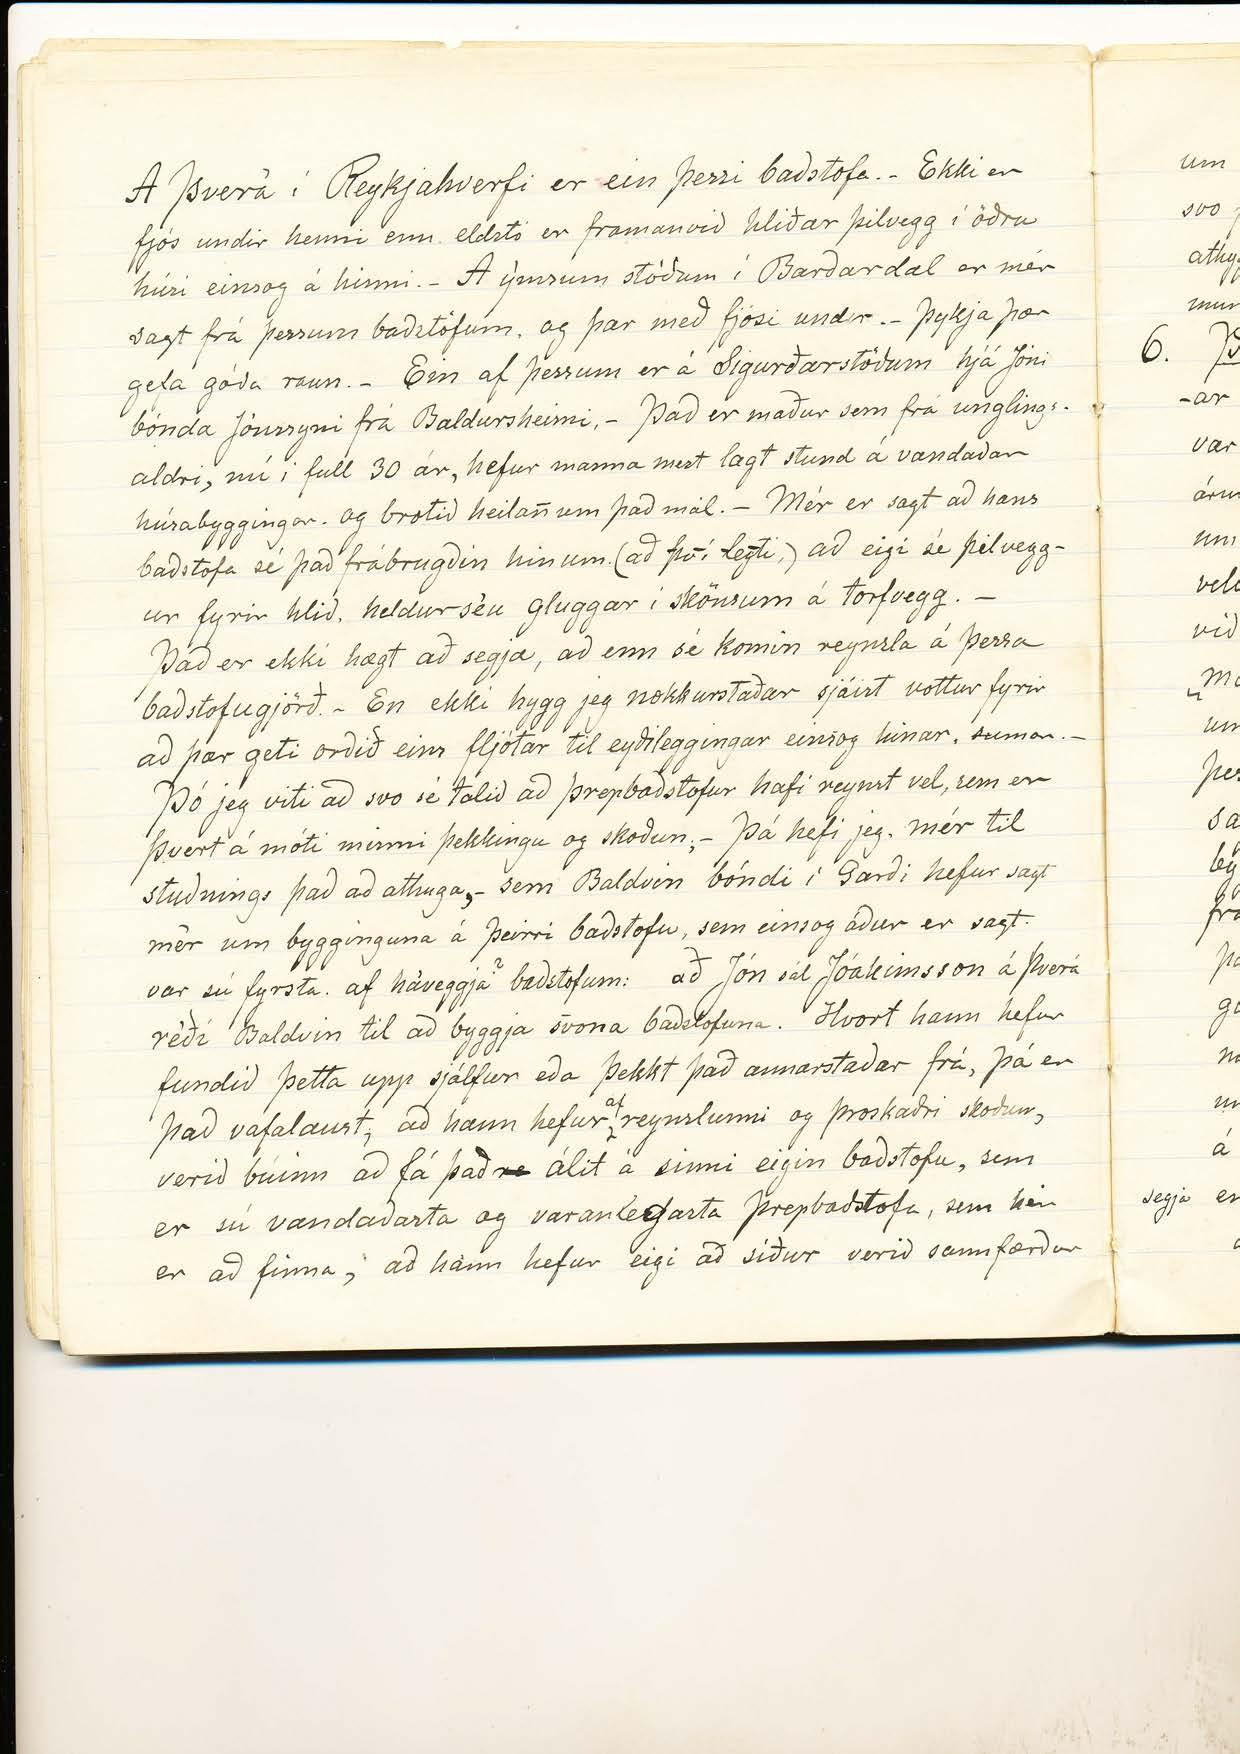 A Þverá í Reykjahverfi er ein þessi baðstofa. - Ekki er
fjós undir henni enn eldstó er framanvið hliðar þilvegg í öðru
húsi einsog á hinni. - A ýmsum stöðum í Barðardal er mér
sagt frá þessum baðstöfum, og þar með fjósi undir. - Þykja þær
gefa góða raun. - Ein af þessum er á Sigurðarstöðum hjá Jóni
bónda Jónssyni frá Baldursheimi, - Það er maður sem frá unglings-
aldri, nú í full 30 ár, hefur manna mest lagt stund á vandaðar
húsabyggingar. og brotið heilann um það mál. - Mér er sagt að hans
baðstofa sé það frábrugðin hinum. (að því leyti,) að eigi sé þilvegg-
ur fyrir hlið, heldur séu gluggar í skönsum á torfvegg. -
Það er ekki hægt að segja, að enn sé komin reynsla á þessa
baðstofugjörð. - En ekki hygg jeg nokkurstaðar sjáist vottur fyrir
að þær geti orðið eins fljótar til eyðileggingar einsog hinar, sumar. -
Þó jeg viti að svo sé talið að þrepbaðstofur hafi reynst vel, sem er
þvert á móti minni þekkingu og skoðun; - Þá hefi jeg, mér til
stuðnings það að athuga, - sem Baldvin bóndi í Garði hefur sagt
mér um bygginguna á þeirri baðstofu, sem einsog áður er sagt.
var sú fyrsta. af háveggja baðstofum: að Jón sál Jóakimsson á Þverá
réði Baldvin til að byggja svona baðstofuna. Hvort hann hefur
fundið þetta upp sjálfur eða þekkt það annarstaðar frá, þá er
það vafalaust; að hann hefur af reynslunni og þroskaðri skoðun,
verið búinn að fá það álit á sinni eigin baðstofu, sem
er sú vandaðasta og varanlegasta þrepbaðstofa, sem hér
er að finna; að hann hefur eigi að síður verið sannfærður
um
svo
6.
-ar
var
við
á
segja